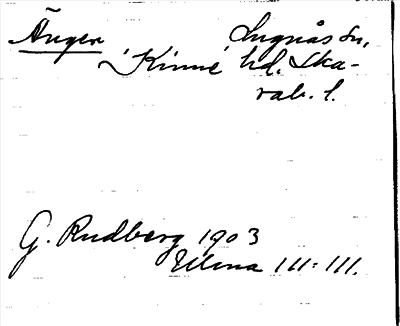 Ängen Lugnås sn,
'Kinne' hd. Ska-
rab. l.
G. Rudberg 1903
Ulma 111:111.